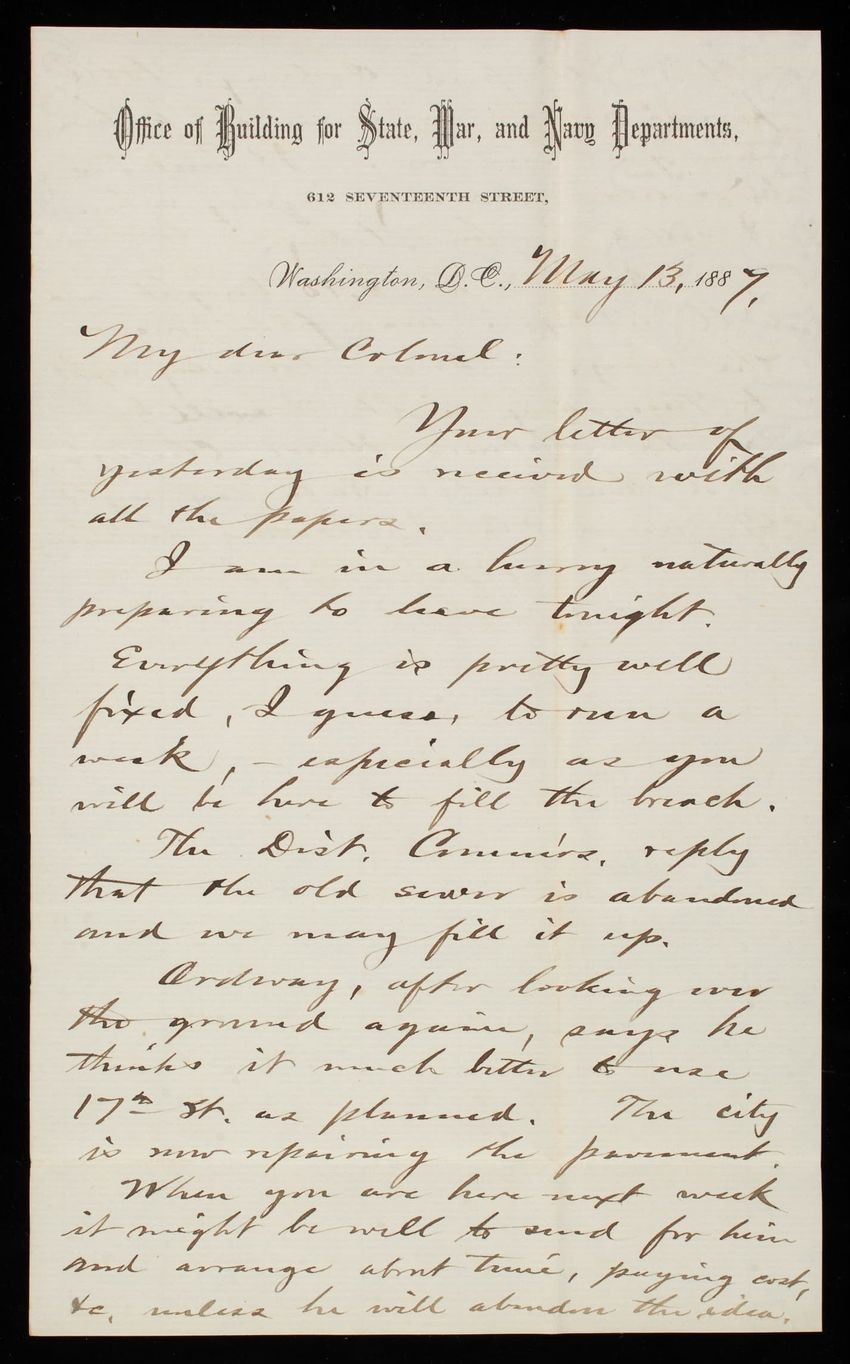 Office of Building for State, War, and Navy Departments,
612 SEVENTEENTH STREET,
Washington, D.C., May 13, 1887,
My dear Colonel:
Your letter of
yesterday is received with
all the papers.
I am in a hurry naturally
preparing to leave tonight.
Everything is pretty well
fixed, I guess, to run a
week, – especially as you
will be here to fill the breach.
The Dist. Commirs. reply
that the old sewer is abandoned
and we may fill it up.
Ordway, after looking over
the ground again, says he
thinks it much better to use
17th St. as planned. The city
is now repairing the pavement.
When you are here next week
it might be well to send for him
and arrange about time, paying cost,
&c. unless he will abandon the idea.